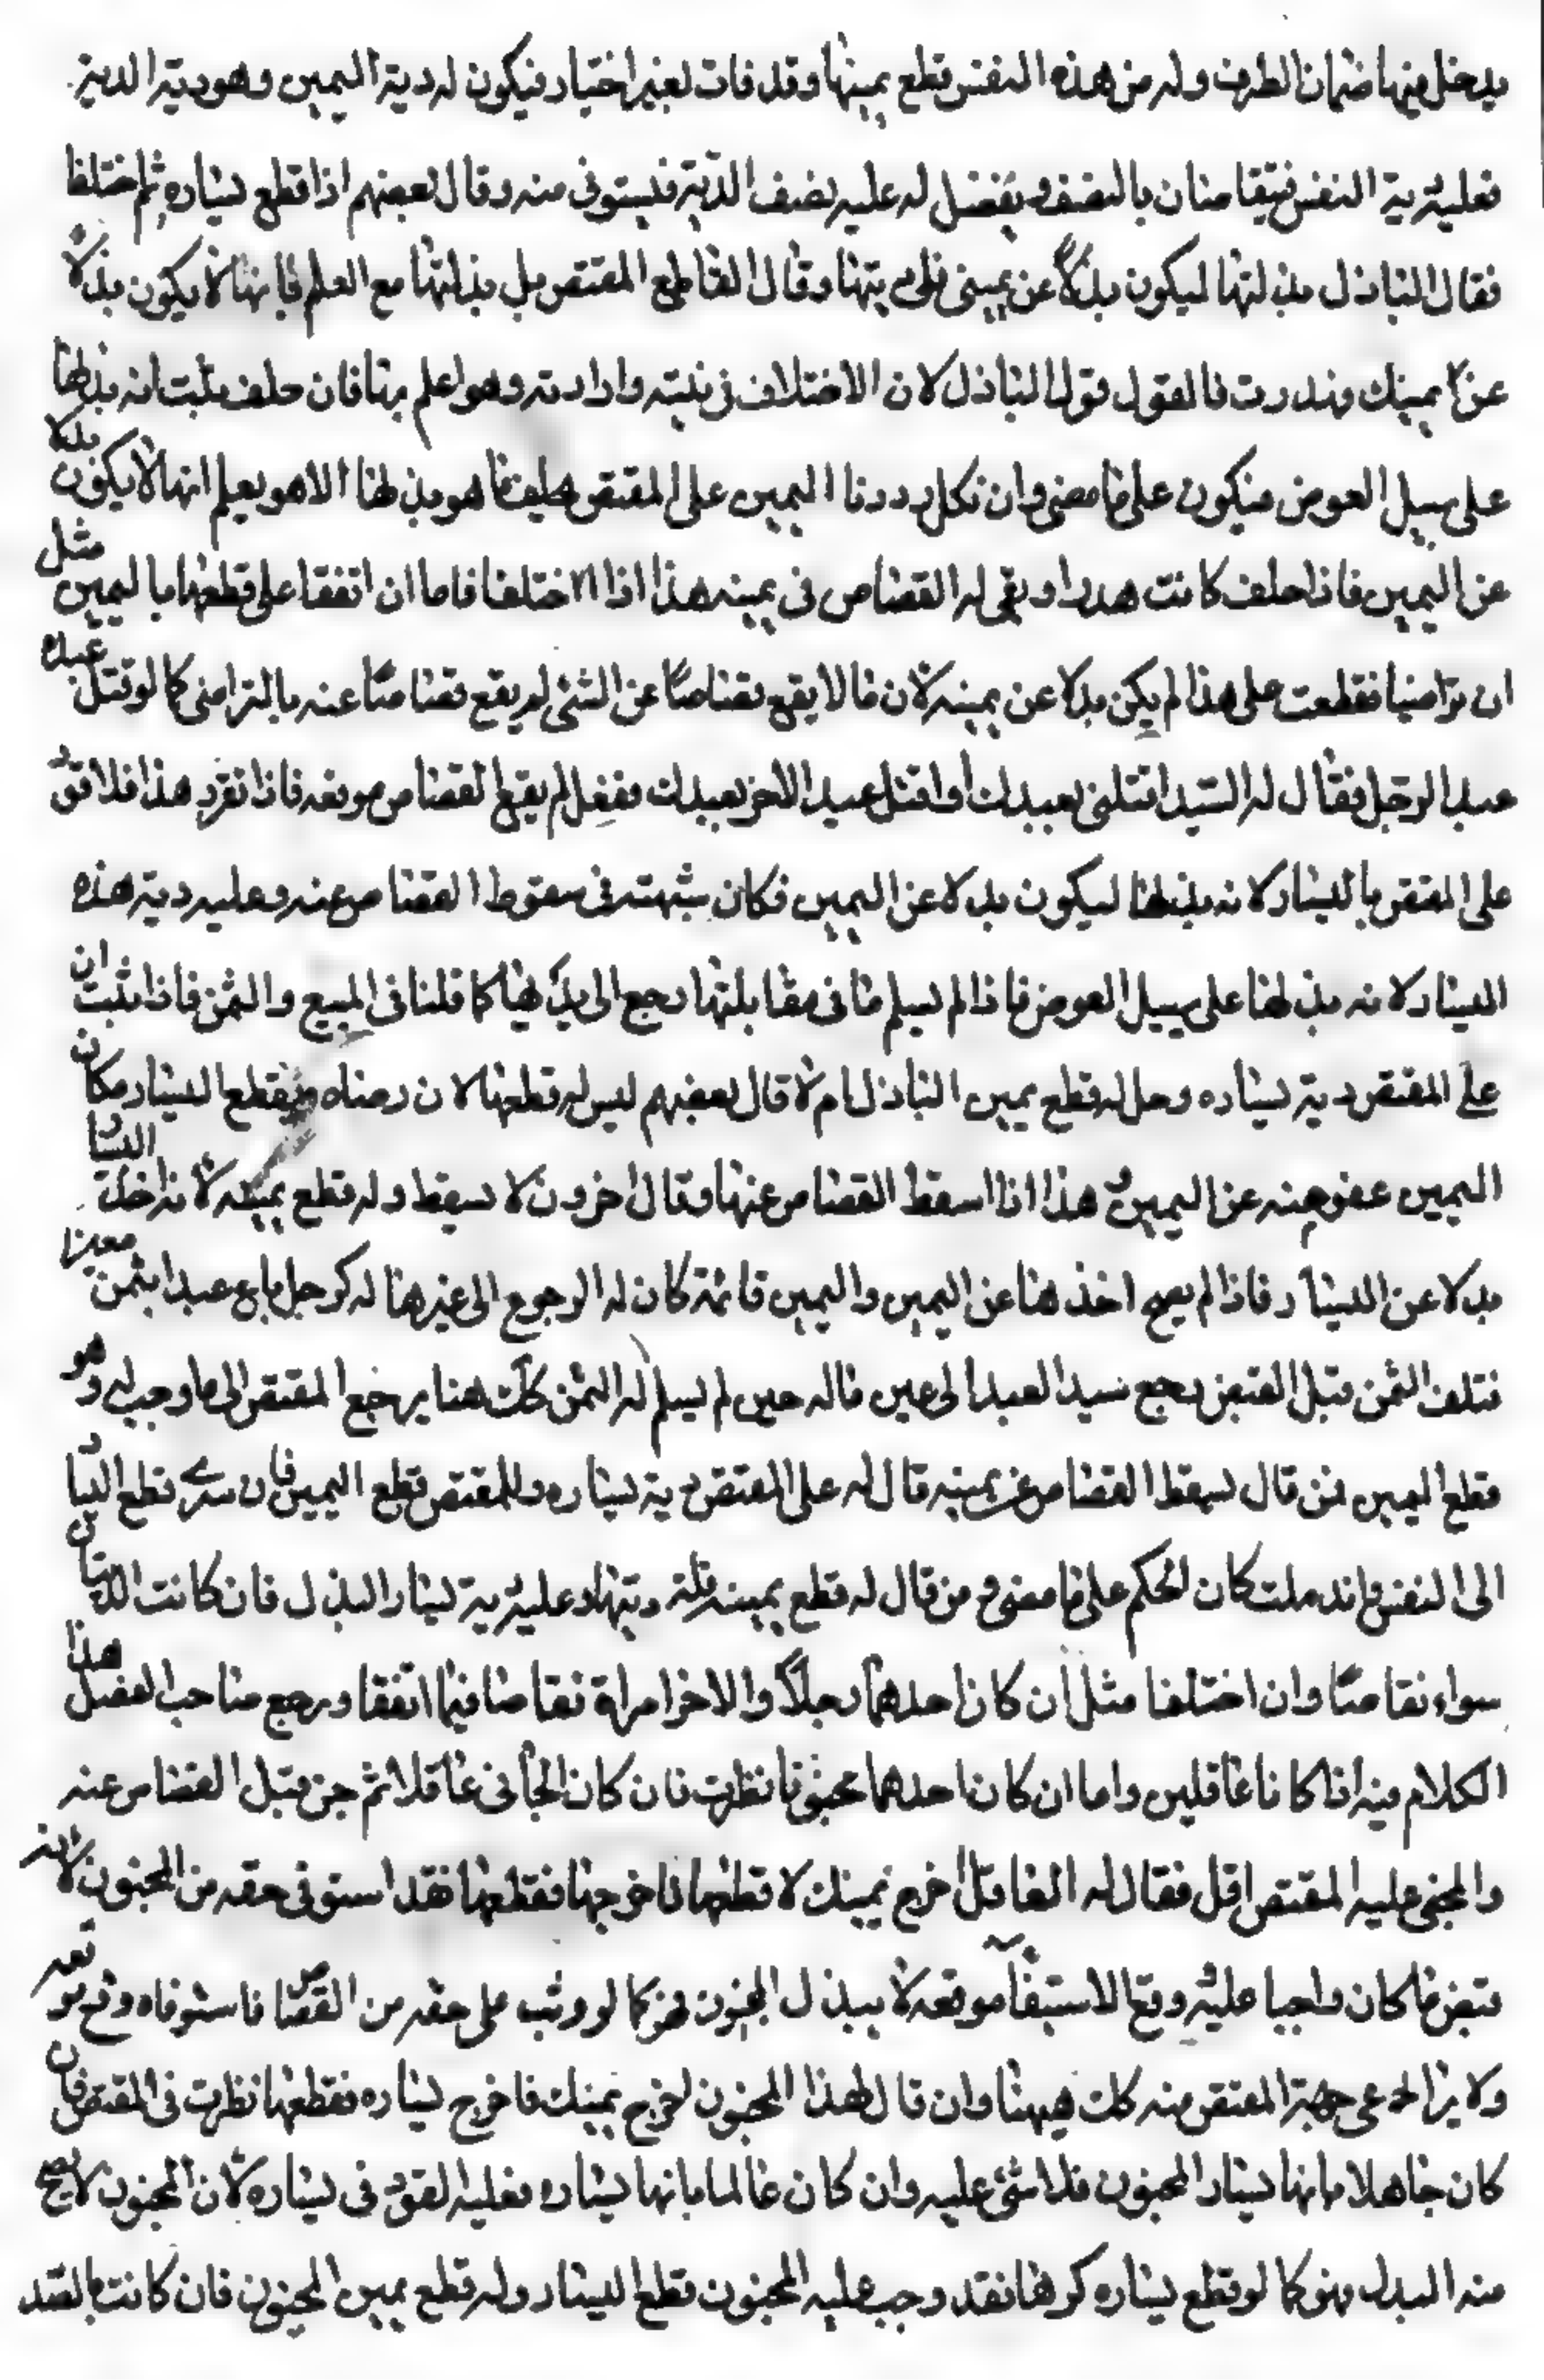 يدخل فيها ضمان الطرف وله من هذه النفس قطع يمينها وقد فات بغير اختيار فيكون له دية اليمين وهو دية الدية
فعليه دية النفس فيتقاصان بالنصف ويفضل له عليه نصف الدية فيستوفى منه وقال بعضهم اذا قطع يساره ثم اختلفا
فقال الباذل بذلتها ليكون بدلا عن يمينى فلى ديتها وقال القاطع المقتص بل بذلتها مع العلم بانها لا يكون بدلا
عن يمينك وهدرت فالقول قول الباذل لان الاختلاف فى نيته وارادته وهو اعلم بها فان حلف ثبت انه بذلها
على سبيل العوض فيكون على ما مضى وان نكل رددنا اليمين على المقتص فيحلف ما هو بذلها الا هو يعلم انها لا يكون بدلا
عن اليمين فاذا حلف كانت هدرا وبقى له القصاص فى يمينه هذا اذا اختلفا فاما ان اتفقا على قطعها باليمين مثل
ان تراضيا فقطعت على هذا لم يكن بدلا عن يمينه لان ما لا يقع قصاصا عن الشئ لم يقع قصاصا عنه بالتراضى كما لو قتل عبده
عبدا لرجل فقال له السيد اقتلنى بعبدك او اقتل عبدى الاخر بعبدك ففعل لم يقع القصاص موقعه فاذا تقرر هذا فلا قود
على المقتص باليسار لانه بذلها ليكون بدلا عن اليمين فكان شبهته فى سقوط القصاص عنه وعليه دية هذه
اليسار لانه بذلها على سبيل العوض فاذا لم يسلم ما فى مقابلتها رجع الى بدلها كما قلنا فى المبيع والثمن فاذا ثبت ان
على المقتص دية يساره وهل له قطع يمين الباذل ام لا قال بعضهم ليس له قطعها لان رضاه بقطع اليسار مكان
اليمين عفو منه عن اليمين هذا اذا اسقط القصاص عنها وقال اخرون لا يسقط وله قطع يمينه لانه اخذ اليسار
بدلا عن اليسار فاذا لم يصح اخذها عن اليمين واليمين قائمة كان له الرجوع الى غيرها له كرجل باع عبدا بثمن معين
فتلف الثمن قبل القبض رجع سيد العبد الى عين ماله حين لم يسلم له الثمن كك هنا يرجع المقتص الى ما وجب له وهو
قطع اليمين فمن قال يسقط القصاص عن يمينه قال له على المقتص دية يساره وللمقتص قطع اليمين فان سرى قطع اليسار
الى النفس واندملت كان الحكم على ما مضى ومن قال له قطع يمينه فله ديتها وعليه دية يسار الباذل فان كانت الديتان
سواء تقاصا وان اختلفا مثل ان كان احدهما رجلا والاخر امراة تقاصا فيما اتفقا ويرجع صاحب الفضل هذا
الكلام فيه اذا كانا عاقلين واما ان كان احدهما مجنونا نظرت فان كان الجانى عاقلا ثم جن قبل القصاص عنه
والمجنى عليه المقتص عاقل فقال له العاقل اخرج يمينك لاقطعها فاخرجها فقطعها فقد استوفى حقه من المجنون لانه
قبض ما كان واجبا عليه ووقع الاستيفاء موقعه لا ببذل المجنون فهو كما لو وثب على حقه من القصاص فاستوفاه وقع موقعه
ولا يراعى جهة المقتص منه كك هيهنا وان قال لهذا المجنون اخرج يمينك فاخرج يساره فقطعها نظرت فى المقتص فان
كان جاهلا بانها يسار المجنون فلا شئ عليه وان كان عالما بانها يساره فعليه القود فى يساره لان المجنون لا يصح
منه البذل فهو كما لو قطع يساره كرها فقد وجب عليه المجنون قطع اليسار وله قطع يمين المجنون فان كانت بالضد